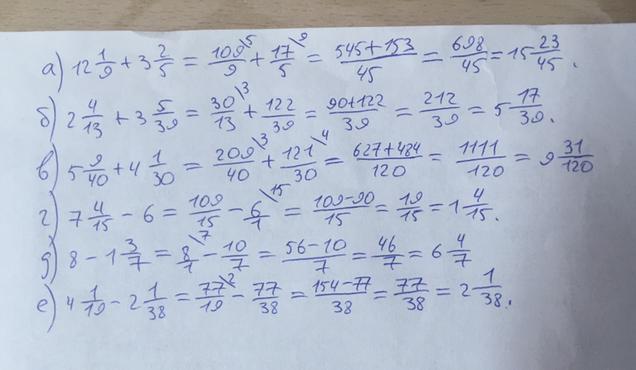 а) 12 1/9 + 3 2/5 = 109\5/9 + 17\9/5 = 545+153/45 = 698/45 = 15 23/45.
б) 2 4/13 + 3 5/39 = 30\3/13 + 122/39 = 90+122/39 = 212/39 = 5 17/39.
в) 5 9/40 + 4 1/30 = 209\3/40 + 121\4/30 = 627+484/120 = 1111/120 = 9 31/120
г) 7 4/15 - 6 = 109/15 - 6\15/1 = 109-90/15 = 19/15 = 1 4/15.
д) 8 - 1 3/7 = 8\7/1 - 10/7 = 56-10/7 = 46/7 = 6 4/7
е) 4 1/19 - 2 1/38 = 77\2/19 - 77/38 = 154-77/38 = 77/38 = 2 1/38.